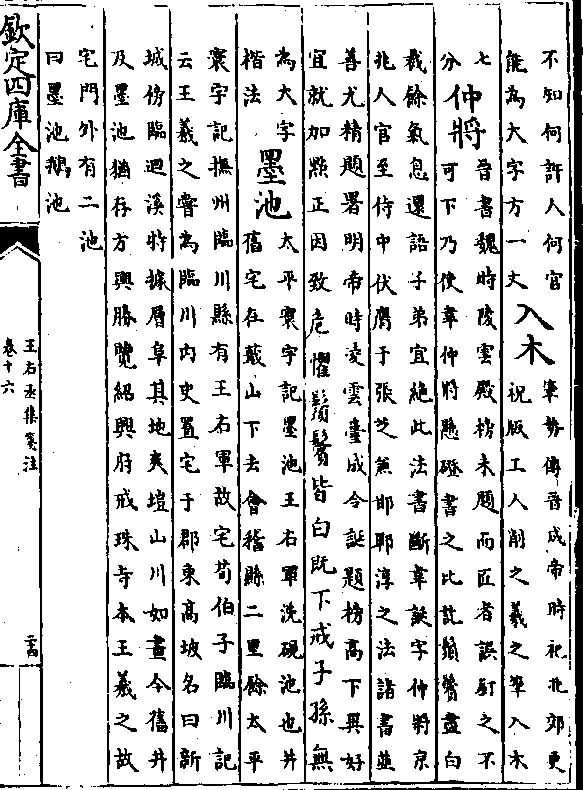 不知何許人何官
能為大字方一丈
入木
筆勢傳晉成帝時祀北郊更
祝版工人削之羲之筆入木
七
分
仲將
晉書魏時陵雲殿榜未題而匠者誤釘之不
可下乃使韋仲將懸磴書之比訖鬚鬢盡白
裁餘氣息還語子弟宜絶此法書斷韋誕字仲將京
兆人官至侍中伏膺于張芝兼邯鄲淳之法諸書並
善尤精題署明帝時凌雲臺成令誕題榜高下異好
宜就加㸃正因致危懼鬚鬢皆白既下戒子孫無
為大字
楷法
墨池
太平寰宇記墨池王右軍洗硯池也并
舊宅在蕺山下去會稽縣二里餘太平
寰宇記撫州臨川縣有王右軍故宅荀伯子臨川記
云王羲之嘗為臨川内史置宅于郡東高坡名曰新
城傍臨迴溪特據層阜其地爽塏山川如畫今舊井
及墨池猶存方輿勝覽紹興府戒珠寺本王羲之故
宅門外有二池
曰墨池鵝池
欽定四庫全書
王右丞集箋注
卷十六